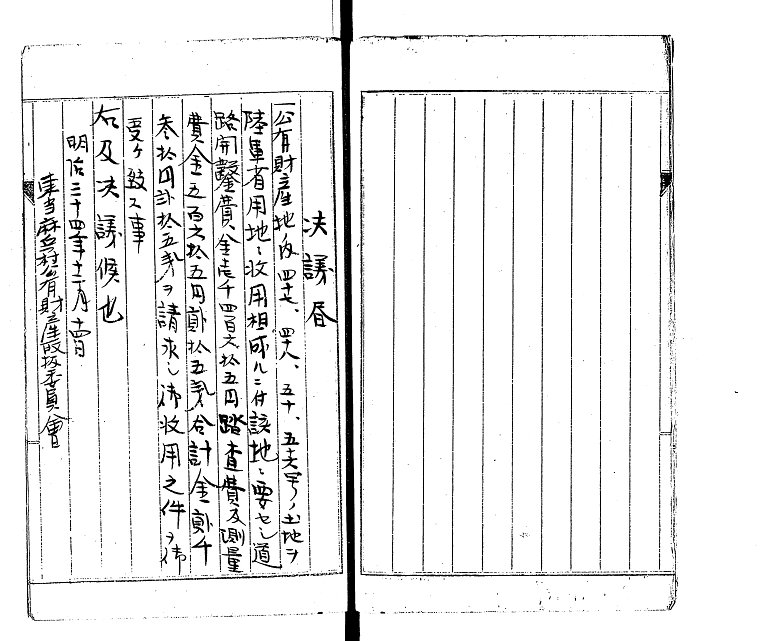 決議書
一公有財産地内四七、四八、五十、五十壱号ノ土地ヲ
陸軍省用地ニ收用相成ルニ付該地ニ要セシ道
路開鑿費金壱千四百六拾五円踏査費及測量
費金五百六拾五円貳拾五銭合計金貳千
参拾円貳拾五銭ヲ請求シ御收用之件ヲ御
受ケ致ス事
右及决議候也
明治三十四年十二月十四日
東当麻兵村公有財産取扱委員會